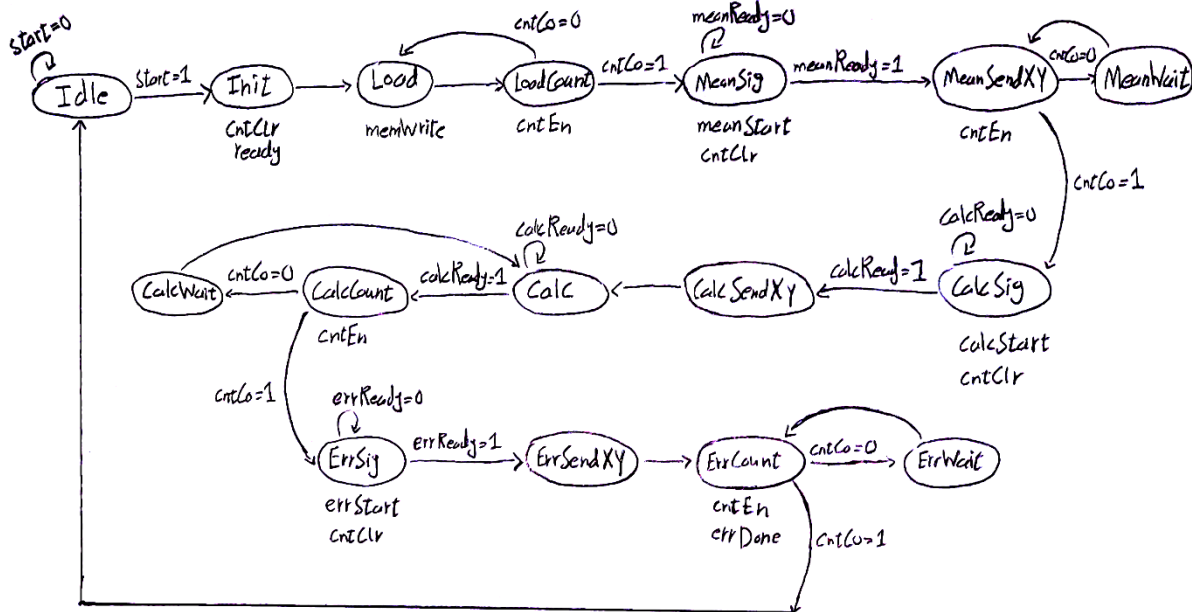 start=0
Idle
start=1
Init
cntClr
ready
Load
memWrite
cntCo=0
LoadCount
cntEn
cntCo=1
meanReady=0
MeanSig
meanStart
cntClr
meanReady=1
MeanSendXY
cntEn
cntCo=0
MeanWait
cntCo=1
calcReady=0
CalcSig
calcStart
cntClr
calcReady=1
CalcSendXY
calcReady=0
Calc
calcReady=1
CalcCount
cntEn
cntCo=0
CalcWait
cntCo=1
errReady=0
ErrSig
errStart
cntClr
errReady=1
ErrSendXY
ErrCount
cntEn
errDone
cntCo=0
ErrWait
cntCo=1